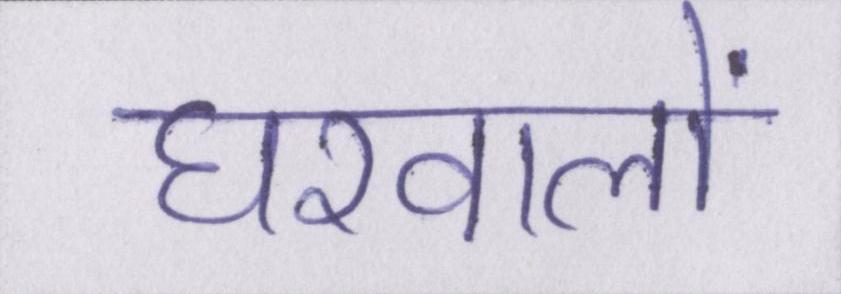 घरवालों